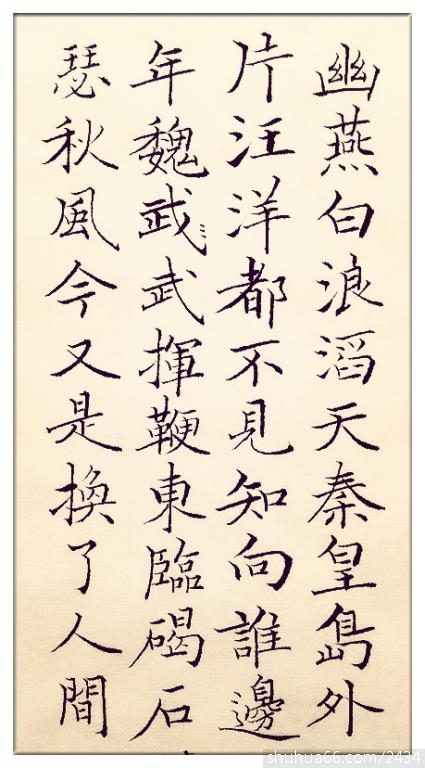 幽燕白浪滔天秦皇島外
片汪洋都不見知向誰邊
年魏武武揮鞭東臨碣石
瑟秋風今又是換了人間
shuhua66.com/2434